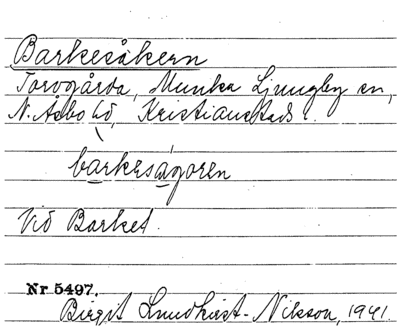 Barkesåkern
Torvgårda, Munka Ljungby sn,
N. Åsbo hd, Kristianstads l.
barkeságoren
Vid Barket.
Nr 5497.
Birgit Lundkvist-Nilsson, 1941.